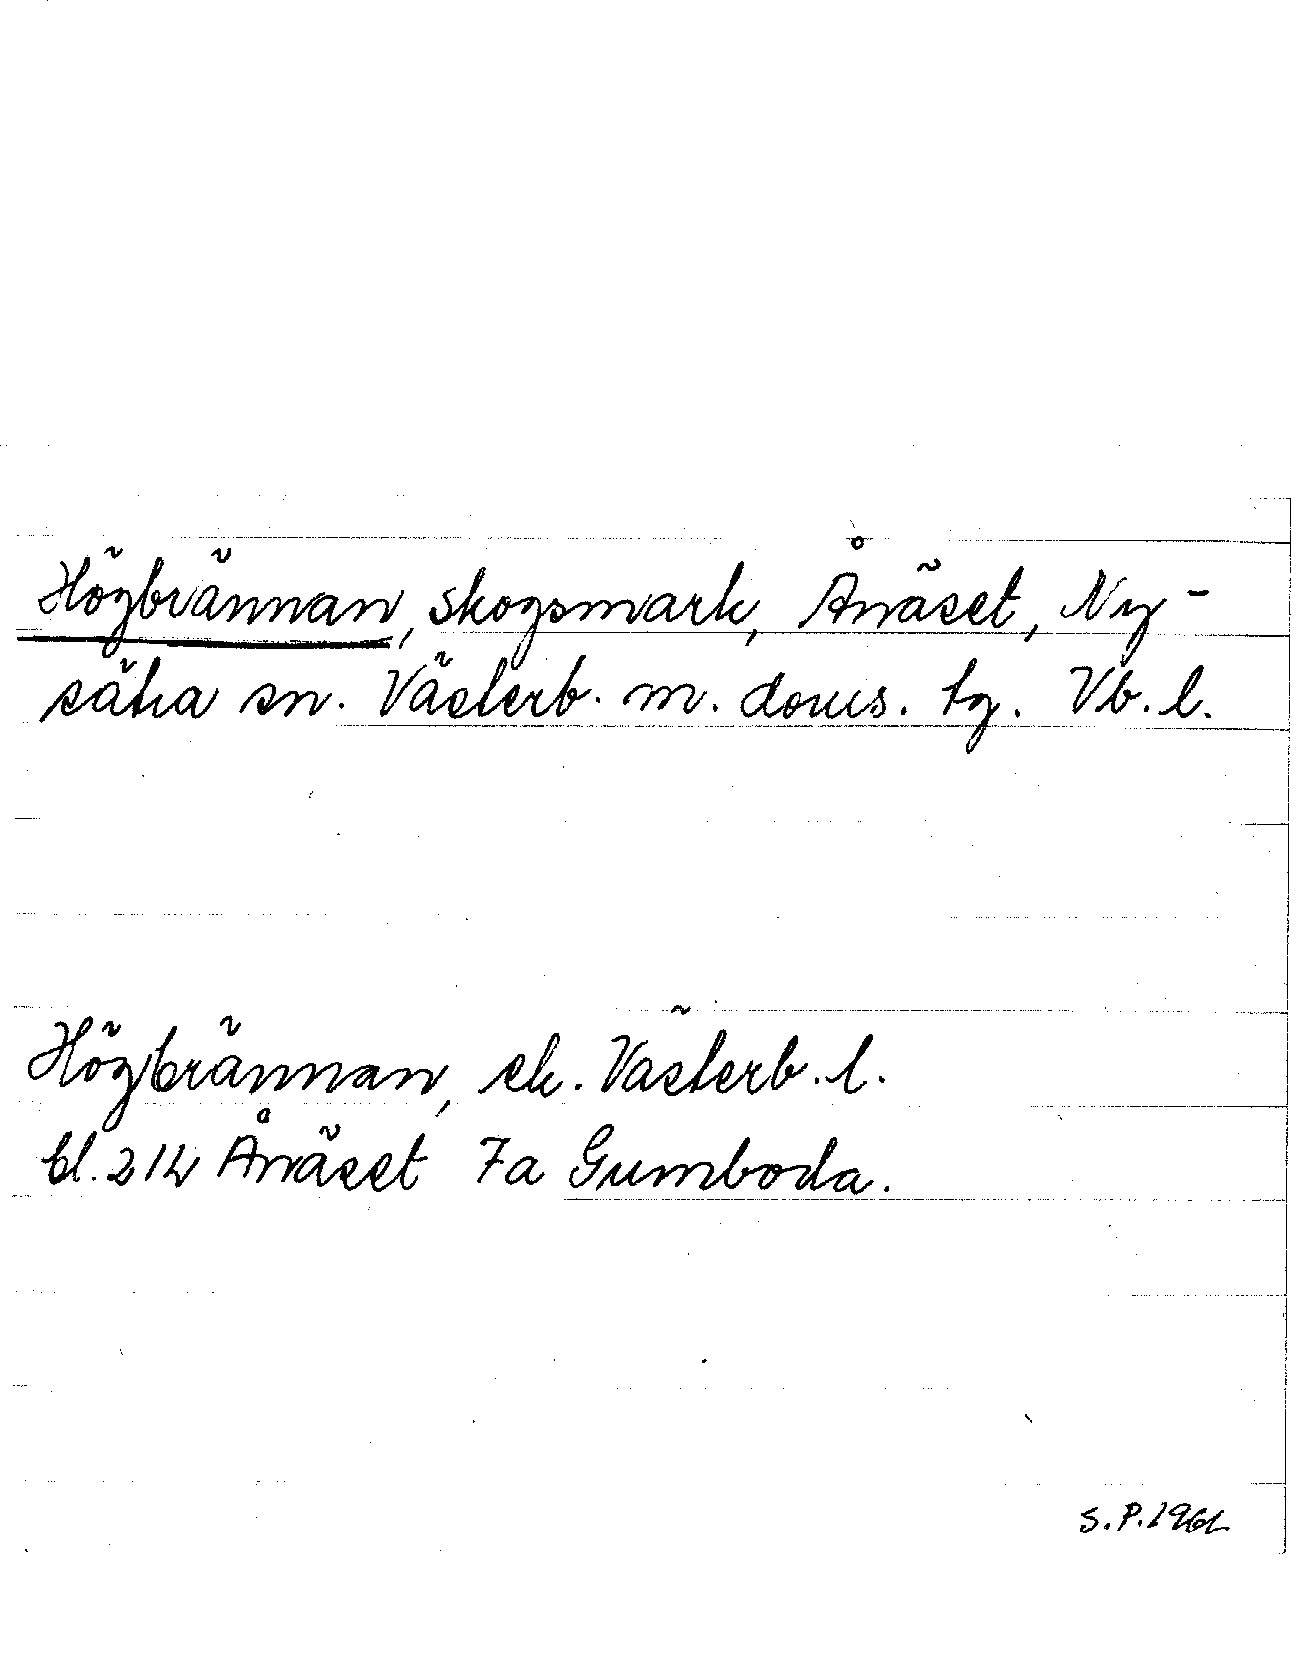 Högbrännan, skogsmark, Ånäset, Ny-
sätra sn. Västerb. m. doms. tg. Vb. l.
Högbrännan, ek. Västerb. l.
bl. 214 Ånäset 7a Gumboda.
S.P. 1961